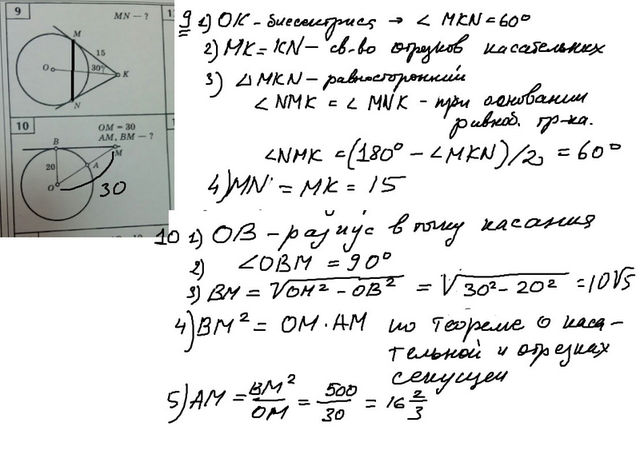 9
MN — ?
M
15
O
30°
K
N
10
OM = 30
AM, BM — ?
B
M
A
20
O
30
9 1) OK - биссектриса → ∠ MKN = 60°
2) MK = KN - св-во отрезков касательных
3) △ MKN - равносторонний
∠ NMK = ∠ MNK - при основании
равноб. тр-ка.
∠NMK = (180° - ∠MKN)/2 = 60°
4) MN = MK = 15
10 1) OB - радиус в точку касания
2) ∠OBM = 90°
3) BM = √OM² - OB² = √30² - 20² = 10√5
4) BM² = OM · AM по теореме о каса-
тельной и отрезках
секущей
5) AM = BM²/OM = 500/30 = 16 2/3